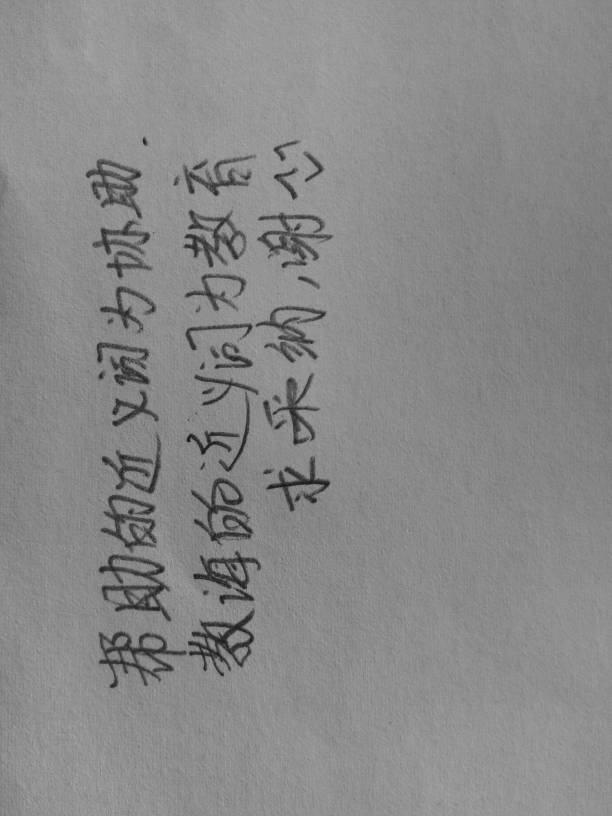 帮助的近义词为协助.
教诲的近义词为教育
求采纳,谢心